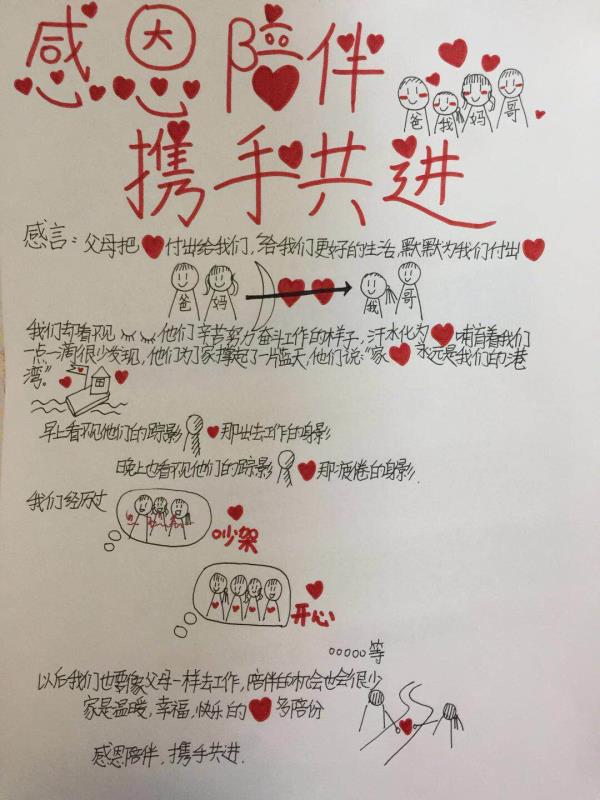 感恩陪伴
爸 我 妈 哥
携手共进
感言:父母把付出给我们,给我们更好的生活,默默为我们付出
爸 妈 我 哥
我们却看不见 他们辛苦努力奋斗工作的样子,汗水化为哺育着我们
一点一滴很少发现,他们为了家撑起了一片蓝天,他们说:“家永远是我们的港
湾。”
早上看不见他们的踪影那出去工作的身影
晚上也看不见他们的踪影那疲倦的身影.
我们经历过
吵架
开心
。。。。。等
以后我们也要像父母一样去工作,陪伴的机会也会很少
家是温暖,幸福,快乐的多陪份
感恩陪伴,携手共进.